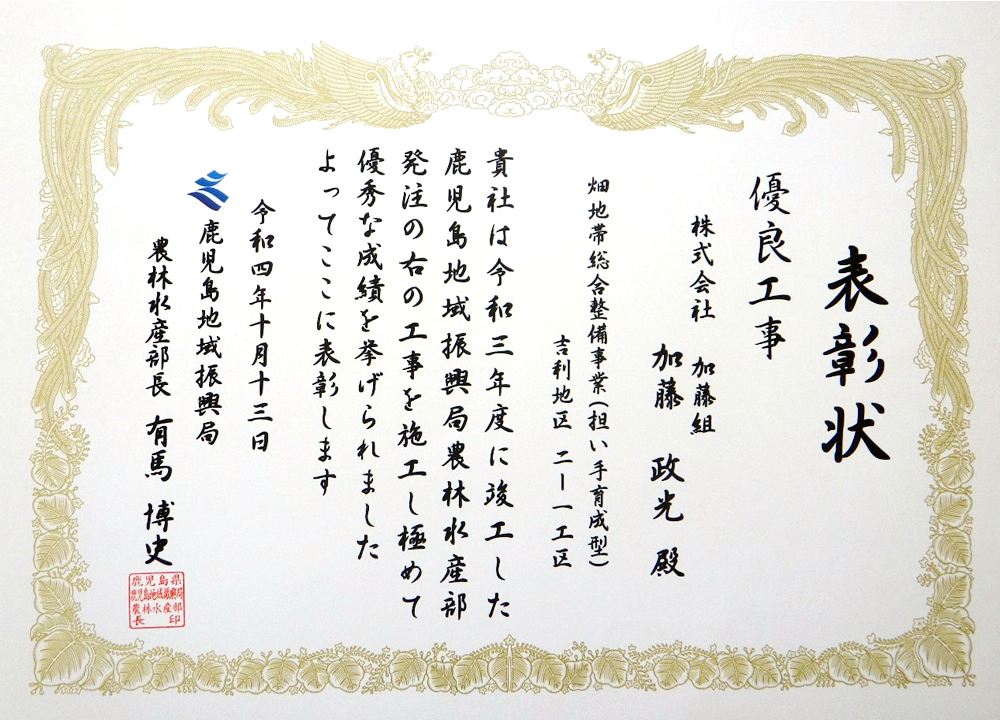 表彰状
優良工事
株式会社 加藤組
加藤 政光 殿
畑地帯総合整備事業(担い手育成型)
吉利地区 二ー一工区
貴社は令和三年度に竣工した
鹿児島地域振興局農林水産部
発注の右の工事を施工し極めて
優秀な成績を挙げられました
よってここに表彰します
令和四年十月十三日
鹿児島地域振興局
農林水産部長 有馬 博史
鹿児島県
鹿児島地域振興局
農林水産部
長印